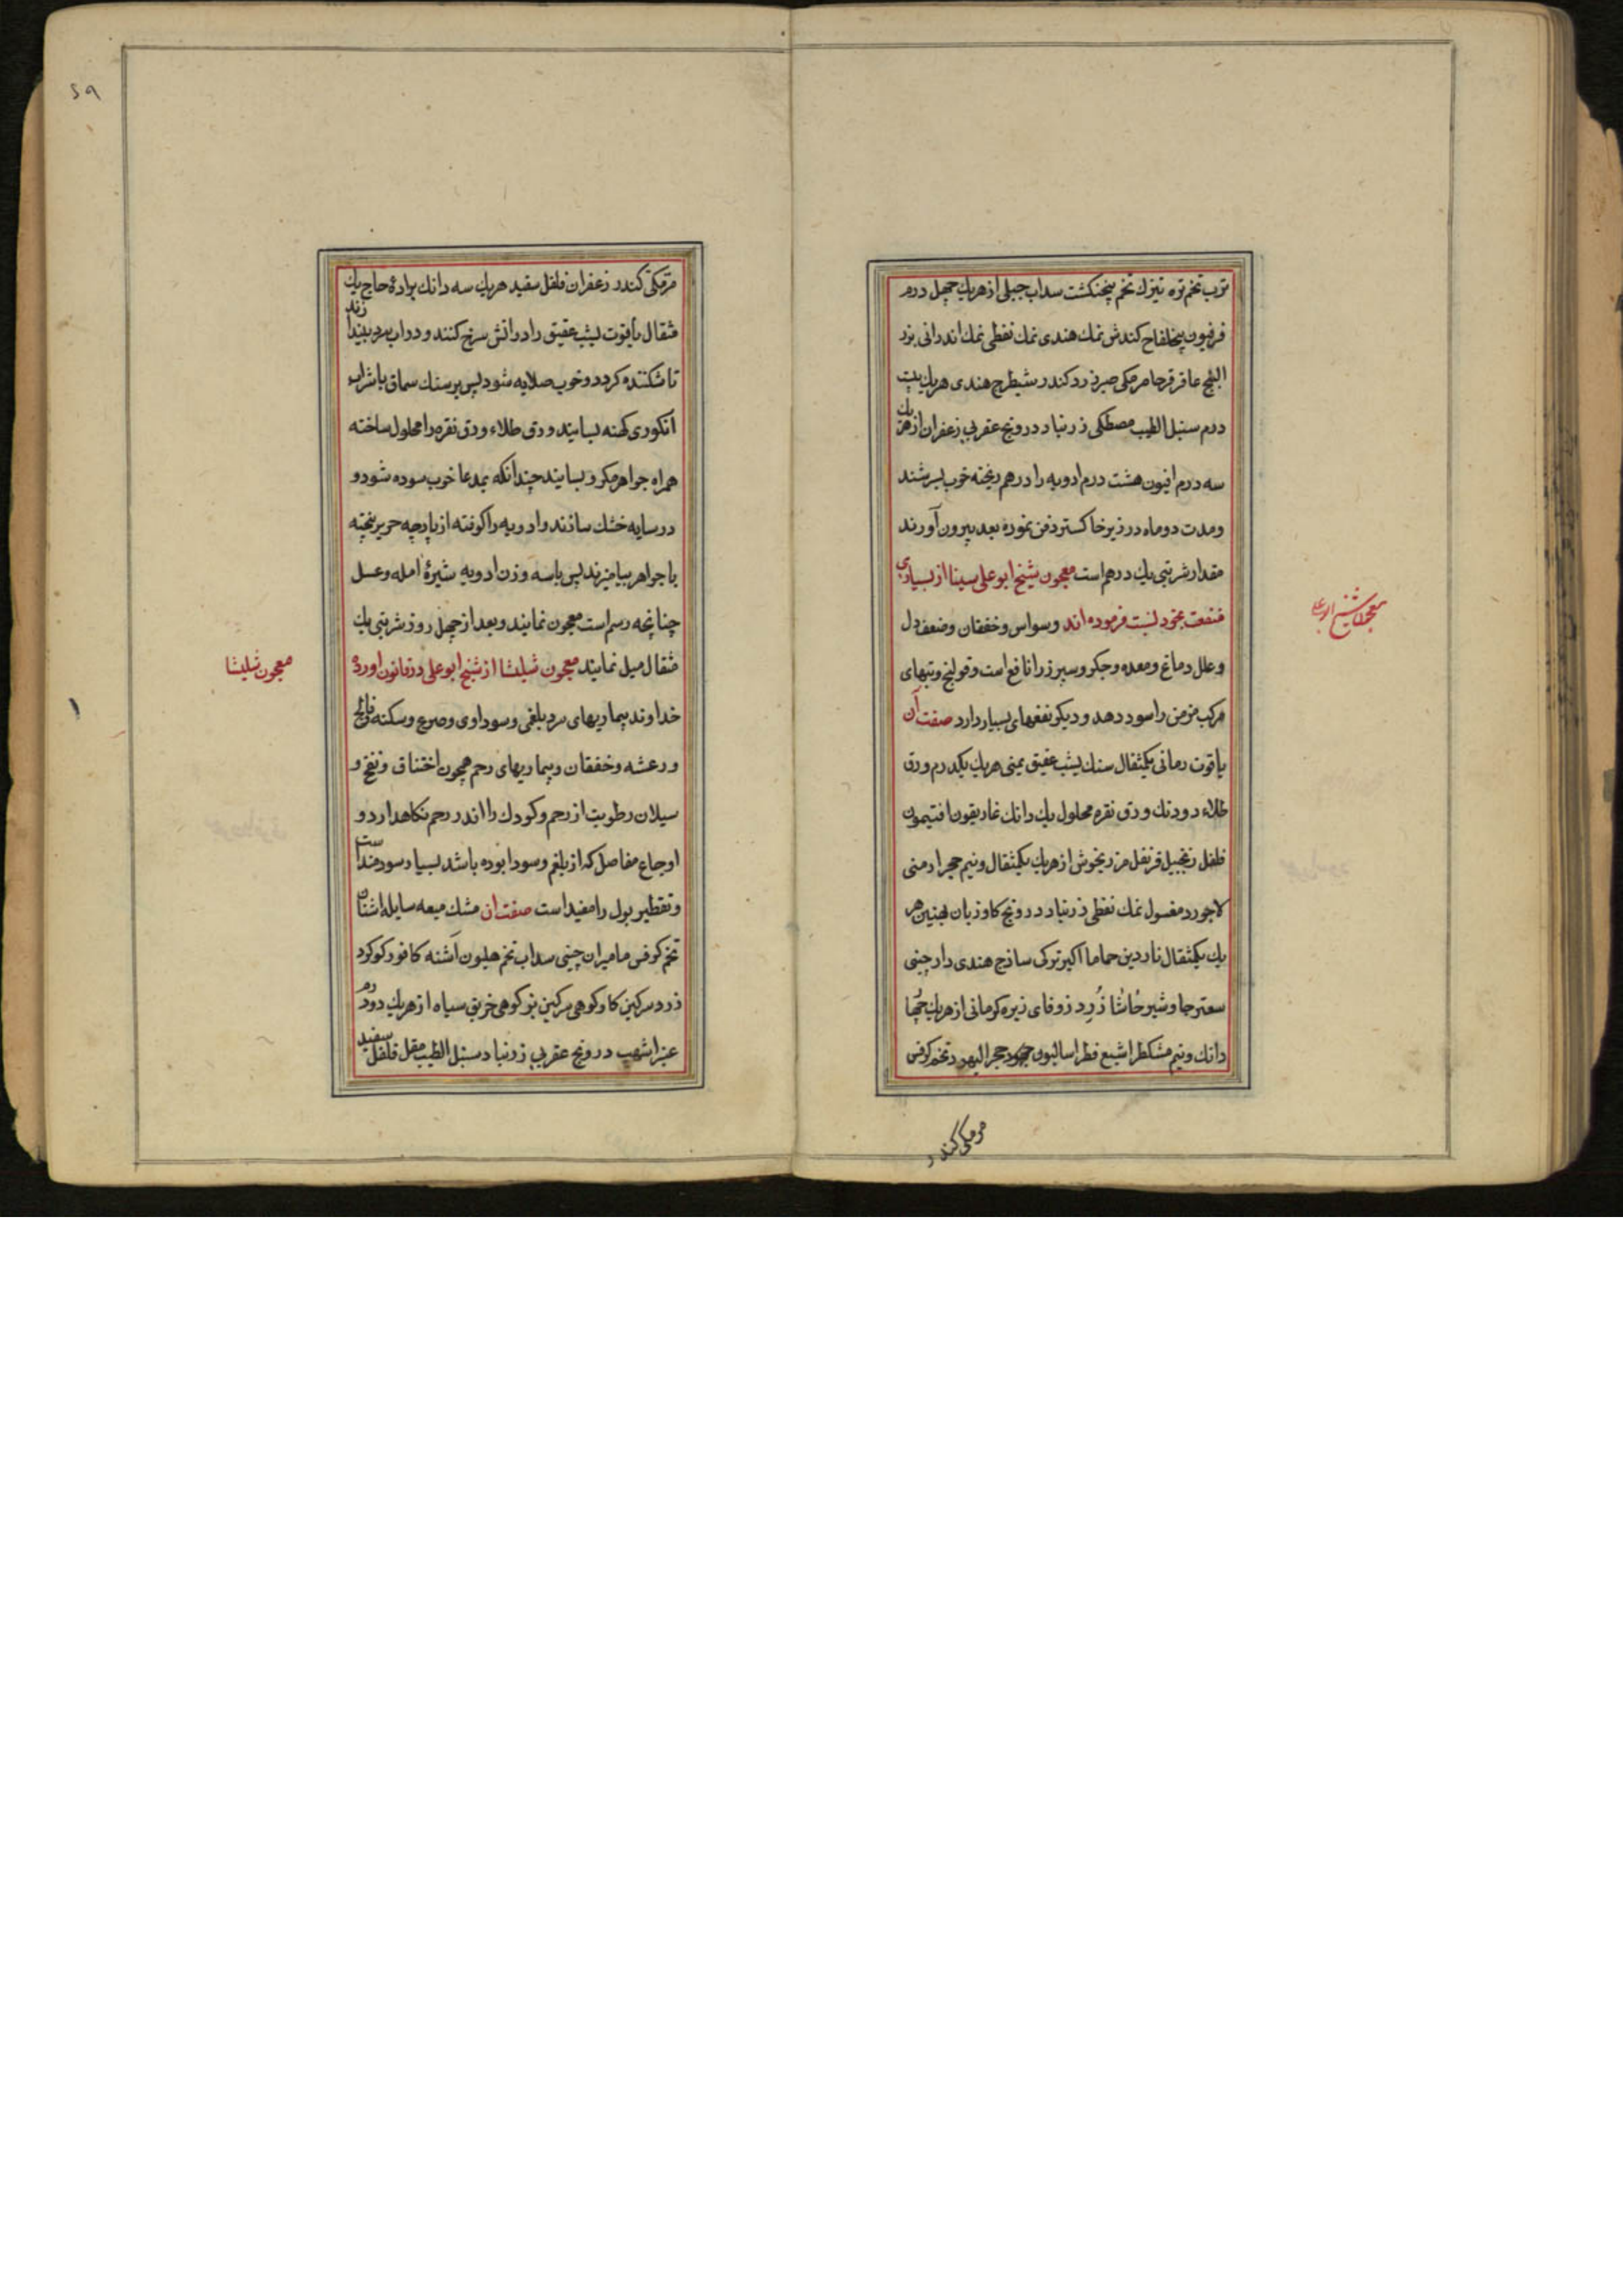 ترب تخم تره تیزك تخم پنجنکشت سداب جبلی از هریك چهل درم
فرفیون بیخ لفاح کندش نمك هندی نمك نفطی نمك اندرانی بزر
البنج عاقرقرحا مرمکی صبر زرد کندر شیطرج هندی هریك بیست
درم سنبل الطیب مصطکی زرنباد درونج عقربی زعفران از هر یك
سه درم افیون هشت درم ادویه را درهم ریخته خوب بسرشند
ومدت دوماه در زیر خاکستر دفن نموده بعد بیرون آورند
مقدار شربتی یك درهم است معجون شیخ ابوعلی سینا از بسیاری
منفعت بخود نسبت فرموده اند وسواس وخفقان وضعف دل
وعلل دماغ ومعده وجکر وسپرز را نافع است وقولنج وتبهای
مرکب مزمن را سود دهد ودیکر نفعهای بسیار دارد صفت آن
یاقوت رمانی یکمثقال سنك یشب عقیق یمنی هریك یکدرم ورق
طلاء دودنك ورق نقره محلول یك دانك غاریقون افتیمون
فلفل زنجبیل قرنفل مرزنجوش از هریك یکمثقال ونیم حجر ارمنی
لاجورد مغسول نمك نفطی زرنباد درونج کاوزبان بهمنین هر
یك یکمثقال ناردین حماما اکیر ترکی ساذج هندی دارچینی
سعتر جاوشیر حاشا زرد زوفای زیره کرمانی از هریك چها
دانك ونیم مشکطرا شیع فطراسالیون حجر الیهود تخم کرفس
مرمکی کندر
معجون شیخ ابوعلی
۵۹
مرمکی کندر زعفران فلفل سفید هریك سه دانك برادهٔ حاج یك
مثقال یاقوت یشب عقیق را در اتش سرخ کنند و در اب سرد بیندازند
تا شکننده کردد وخوب صلایه شود پس بر سنك سماق با شراب
انکوری کهنه بسایند ورق طلاء ورق نقره را محلول ساخته
همراه جواهر مکرر بسایند چندانکه بمدعا خوب سوده شود و
در سایه خشك سازند وادویه را کوفته از پارچه حریر بیخته
با جواهر بیامیزند پس باسه وزن ادویه شیرهٔ امله وعسل
چنانچه رسم است معجون نمایند وبعد از چهل روز شربتی یك
مثقال میل نمایند معجون شلیثا از شیخ ابوعلی در قانون اورده
خداوند بیماریهای سرد بلغمی وسوداوی وصرع وسکته وفالج
ورعشه وخفقان وبیماریهای رحم همچون اختناق ونفخ و
سیلان رطوبت از رحم وکودك را اندر رحم نکاهدارد و
اوجاع مفاصل که از بلغم وسودا بوده باشد بسیار سودمند است
وتقطیر بول را مفید است صفت ان مشك میعه سایله اشنان
تخم کرفس مامیران چینی سداب تخم هلیون اشنه کافور کوکرد
زرد سرکین کاو کوهی سرکین بز کوهی خربق سیاه از هریك دودرم
عنبر اشهب درونج عقربی زرنباد سنبل الطیب مقل فلفل سفید
معجون شلیثا
۱